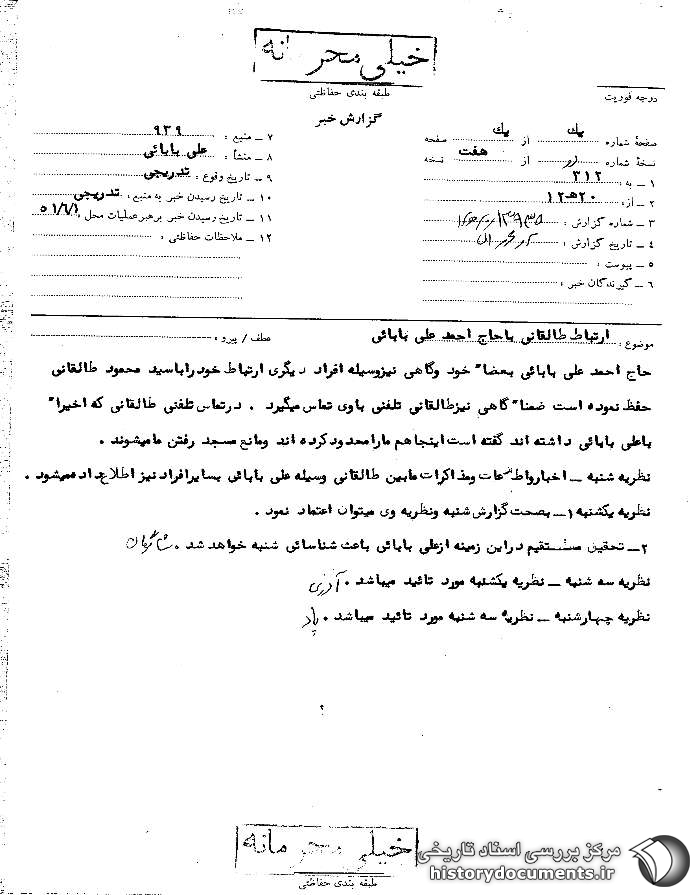 خیلی محرمانه
طبقه بندی حفاظتی
درجه فوریت
گزارش خبر
صفحهٔ شماره یك از یك صفحه
نسخهٔ شماره دو از هفت نسخه
۱ ــ به : ۳۱۲
۲ ــ از : ۲۰ ه ۱۲
۳ ــ شماره گزارش :
۴ ــ تاریخ گزارش :
۵ ــ پیوست :
۶ ــ گیرندگان خبر :
۷ ــ منبع : ۹۳۹
۸ ــ منشأ : علی بابائی
۹ ــ تاریخ وقوع : تدریجی
۱۰ ــ تاریخ رسیدن خبر به منبع : تدریجی
۱۱ ــ تاریخ رسیدن خبر برهبر عملیات محل : ۵۱/۶/۱
۱۲ ــ ملاحظات حفاظتی :
موضوع : ارتباط طالقانی با حاج احمد علی بابائی
عطف / پیرو :
حاج احمد علی بابائی بعضا" خود وگاهی نیزوسیله افراد دیگری ارتباط خودراباسید محمود طالقانی
حفظ نموده است ضمنا" گاهی نیزطالقانی تلفنی باوی تماس میگیرد . درتماس تلفنی طالقانی که اخیرا"
باعلی بابائی داشته اند گفته است اینجا هم مارامحدود کرده اند ومانع مسجد رفتن مامیشوند .
نظریه شنبه ــ اخبارواطلاعات ومذاکرات مابین طالقانی وسیله علی بابائی بسایرافراد نیز اطلاع داده میشود .
نظریه یکشنبه ۱ــ بصحت گزارش شنبه ونظریه وی میتوان اعتماد نمود .
۲ــ تحقیق مستقیم دراین زمینه ازعلی بابائی باعث شناسائی شنبه خواهد شد .
نظریه سه شنبه ــ نظریه یکشنبه مورد تائید میباشد . آذری
نظریه چهارشنبه ــ نظریه سه شنبه مورد تائید میباشد . پاد
خیلی محرمانه
طبقه بندی حفاظتی
مرکز بررسی اسناد تاریخی
historydocuments.ir